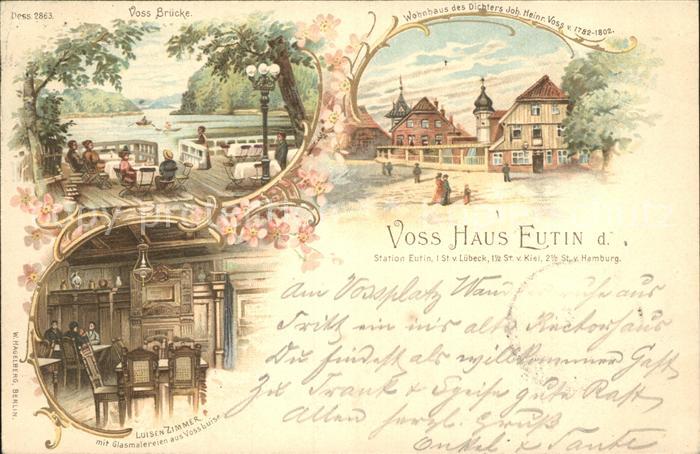 Dess. 2863.
Voss Brücke.
Wohnhaus des Dichters Joh. Heinr. Voss v. 1782-1802.
VOSS HAUS EUTIN d.
Station Eutin, 1 St. v. Lübeck, 1½ St. v. Kiel, 2½ St. v. Hamburg.
Am Vossplatz ruhe aus
Tritt ein ins alte Rectorhaus
Du findest als willkommner Gast
Zu Trank & Speise gute Rast
Allen herzl. Gruß
Onkel & Tante
LUISEN ZIMMER
mit Glasmalereien aus Voss Luise.
W. HAGELBERG, BERLIN.